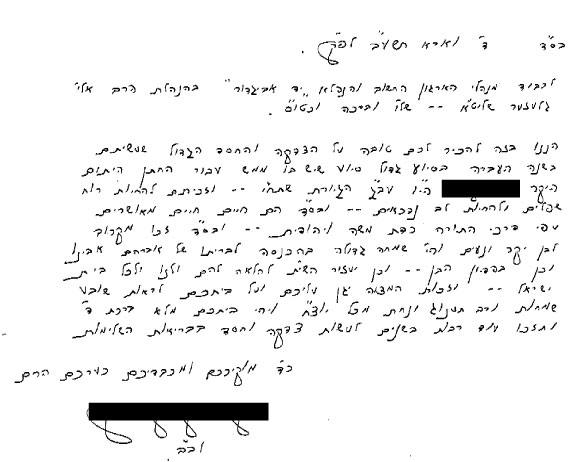 בס"ד ד' וארא תשע"ב לפ"ק.
לכבוד מנהלי הארגון החשוב והנפלא "יד אביגדור" בהנהלת הרב אלי'
שליט"א -- שלו' וברכה וכט"ס.
הננו בזה להכיר לכם טובה על הצדקה והחסד הגדול שעשיתם
בשנה העברה בסיוע גדול סיוע שיש בו ממש עבור החתן היתום
היקר הי"ו עב"ג הגיורת שתחי' -- וזכיתם להחיות רוח
שפלים ולהחיות לב נדכאים -- ובס"ד הם חיים חיים מאושרים
עפ"י דרכי התורה כדת משה ויהודית -- ובס"ד זכו מקרוב
לבן יקר ונעים והי' שמחה גדולה בהכנסה לבריתו של אברהם אבינו
וכן בפדיון הבן -- וכן יעזור השי"ת להלאה להם ולנו ולכל בית
ישראל -- וזכות המצוה יגן עליכם ועל ביתכם לראות שובע
שמחות ורב תענוג ונחת מכל יוצ"ח ויהי ביתכם מלא ברכת ד'
ותזכו עוד רבות בשנים לעשות צדקה וחסד בבריאות השלימות
כ"ד מוקירכם ומכבדיכם כערכם הרם